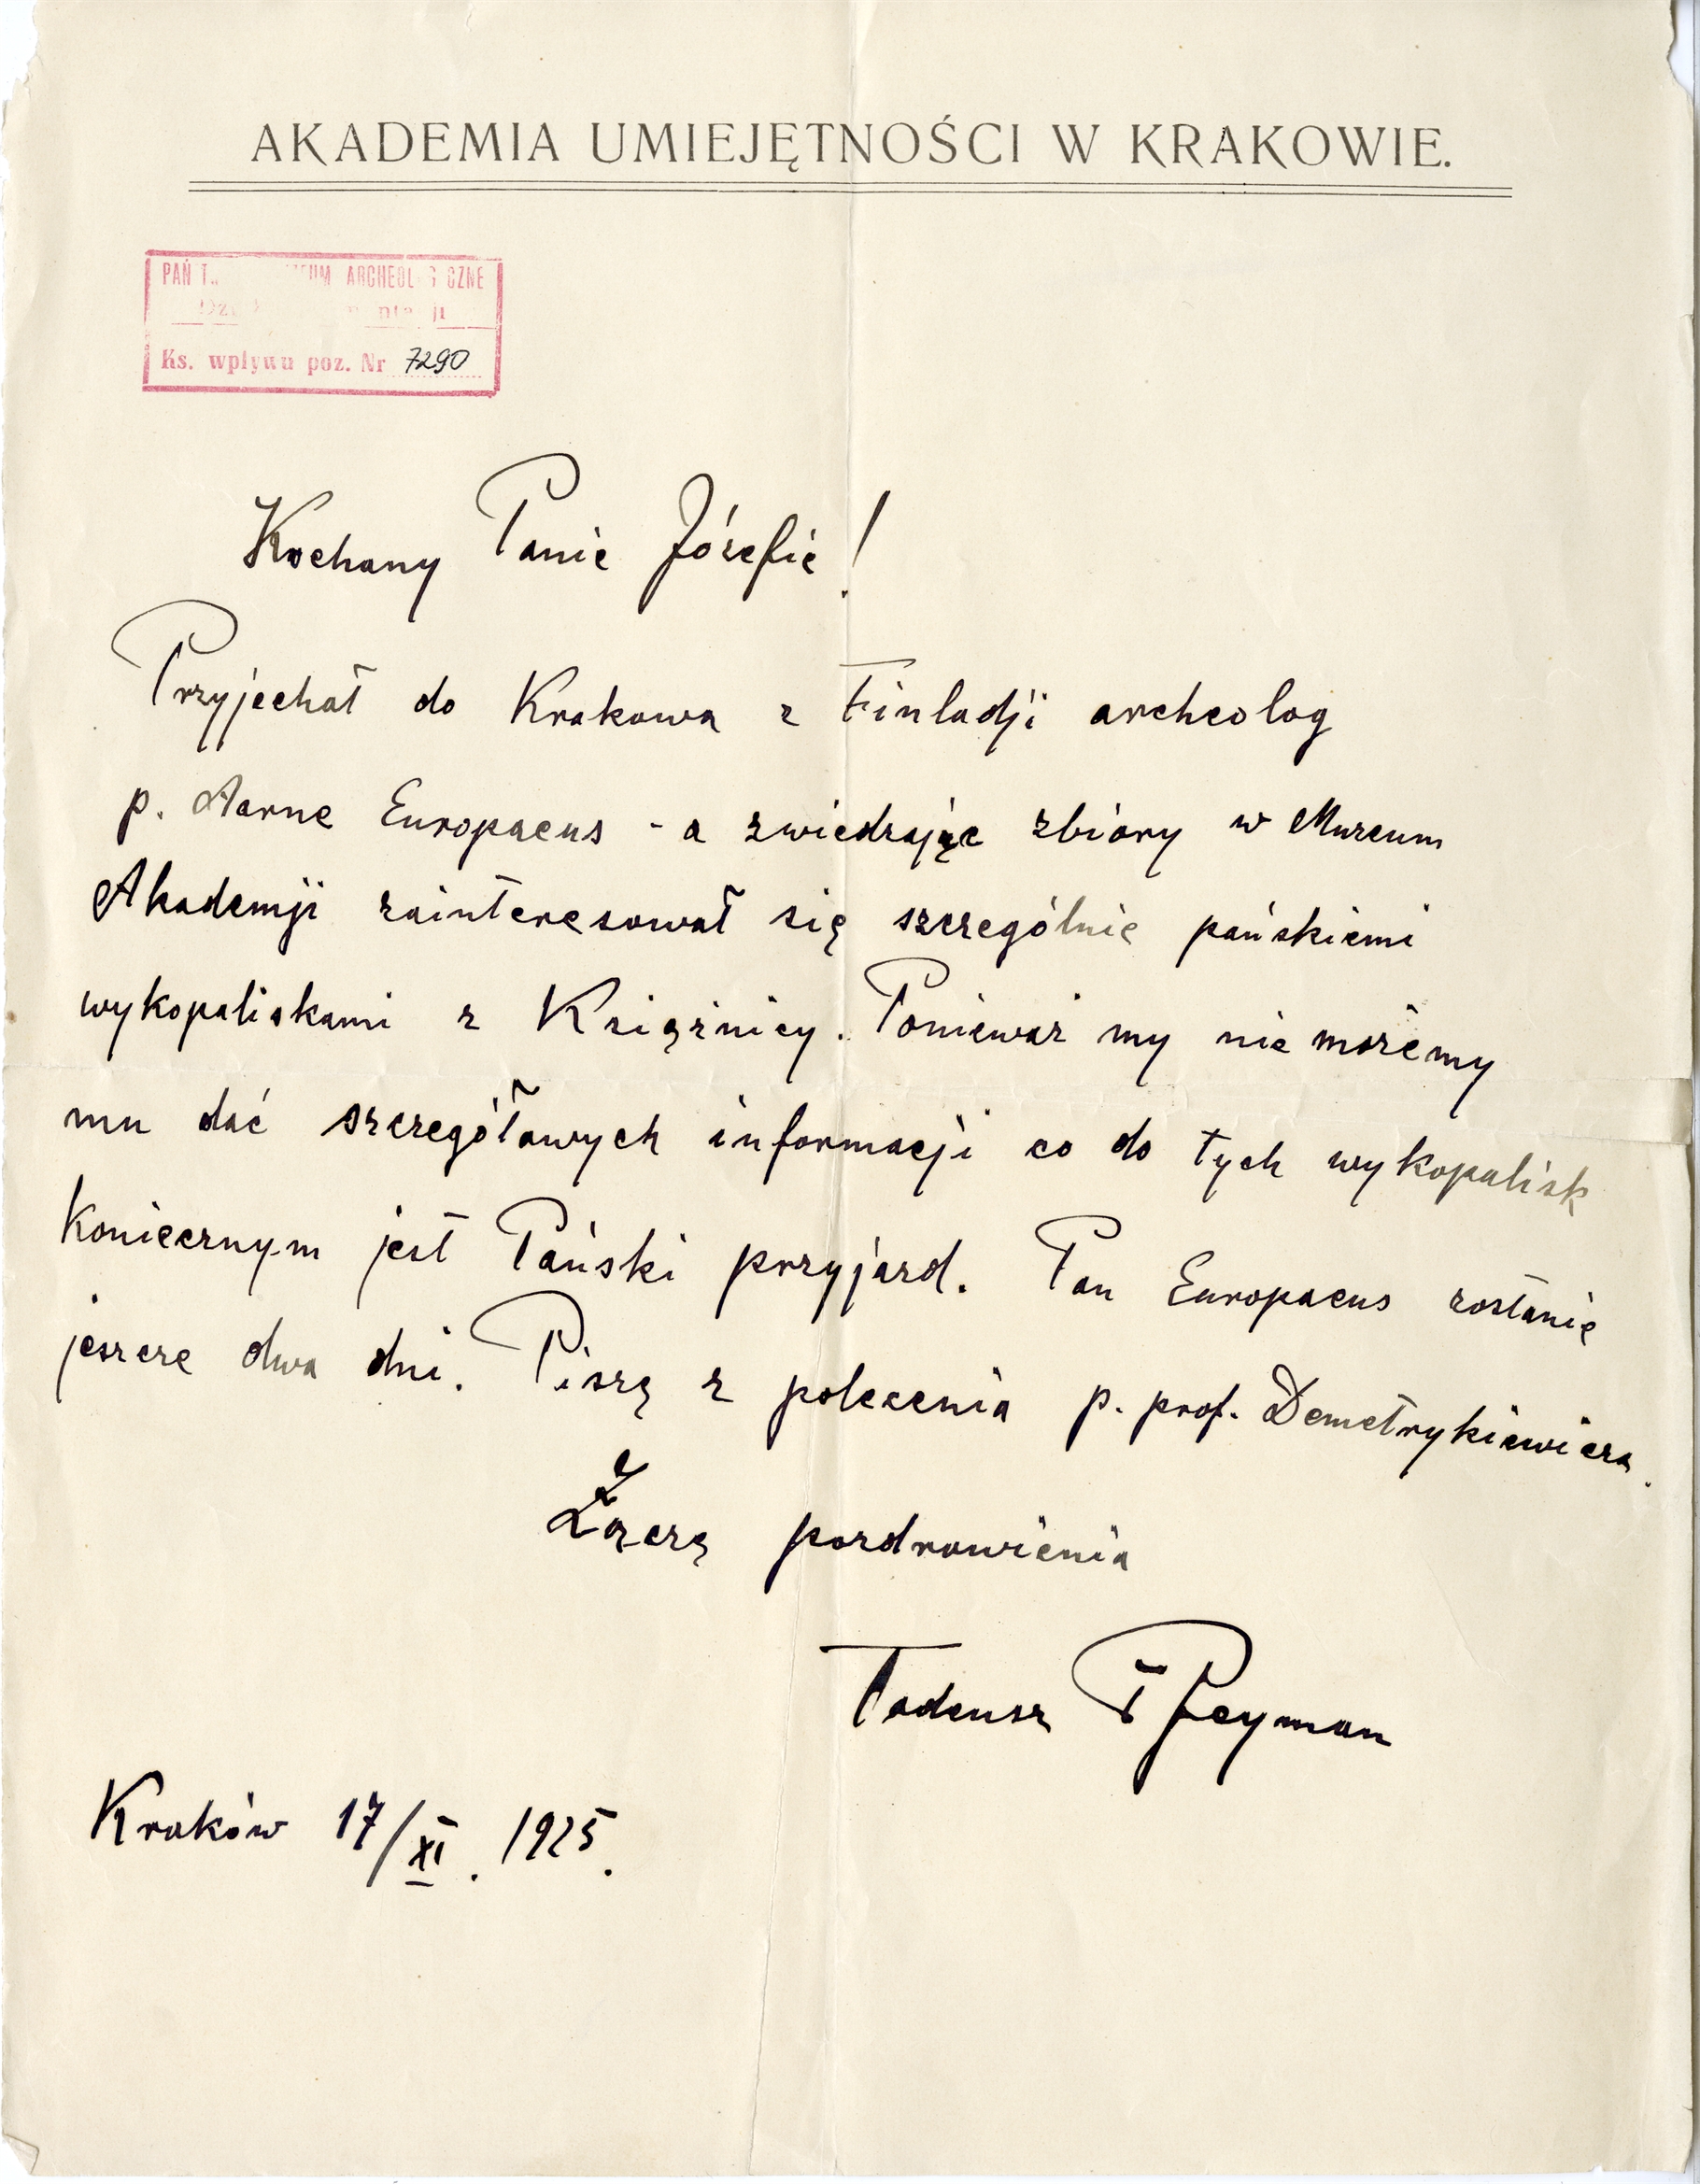 AKADEMIA UMIEJĘTNOŚCI W KRAKOWIE.
ARCHEOL G CZNE
Ks. wpływu poz. Nr 7290
Kochany Panie Józefie!
Przyjechał do Krakowa z Finladji archeolog
p. Aarne Europaeus - a zwiedzając zbiory w Muzeum
Akademji zainteresował się szczególnie pańskiemi
wykopaliskami z Książnicy. Ponieważ my nie możemy
mu dać szczegółowych informacji co do tych wykopalisk
koniecznym jest Pański przyjazd. Pan Europaeus zostanie
jeszcze dwa dni. Piszę z polecenia p. prof. Demetrykiewicza.
Łączę pozdrowienia
Tadeusz Reyman
Kraków 17/XI. 1925.